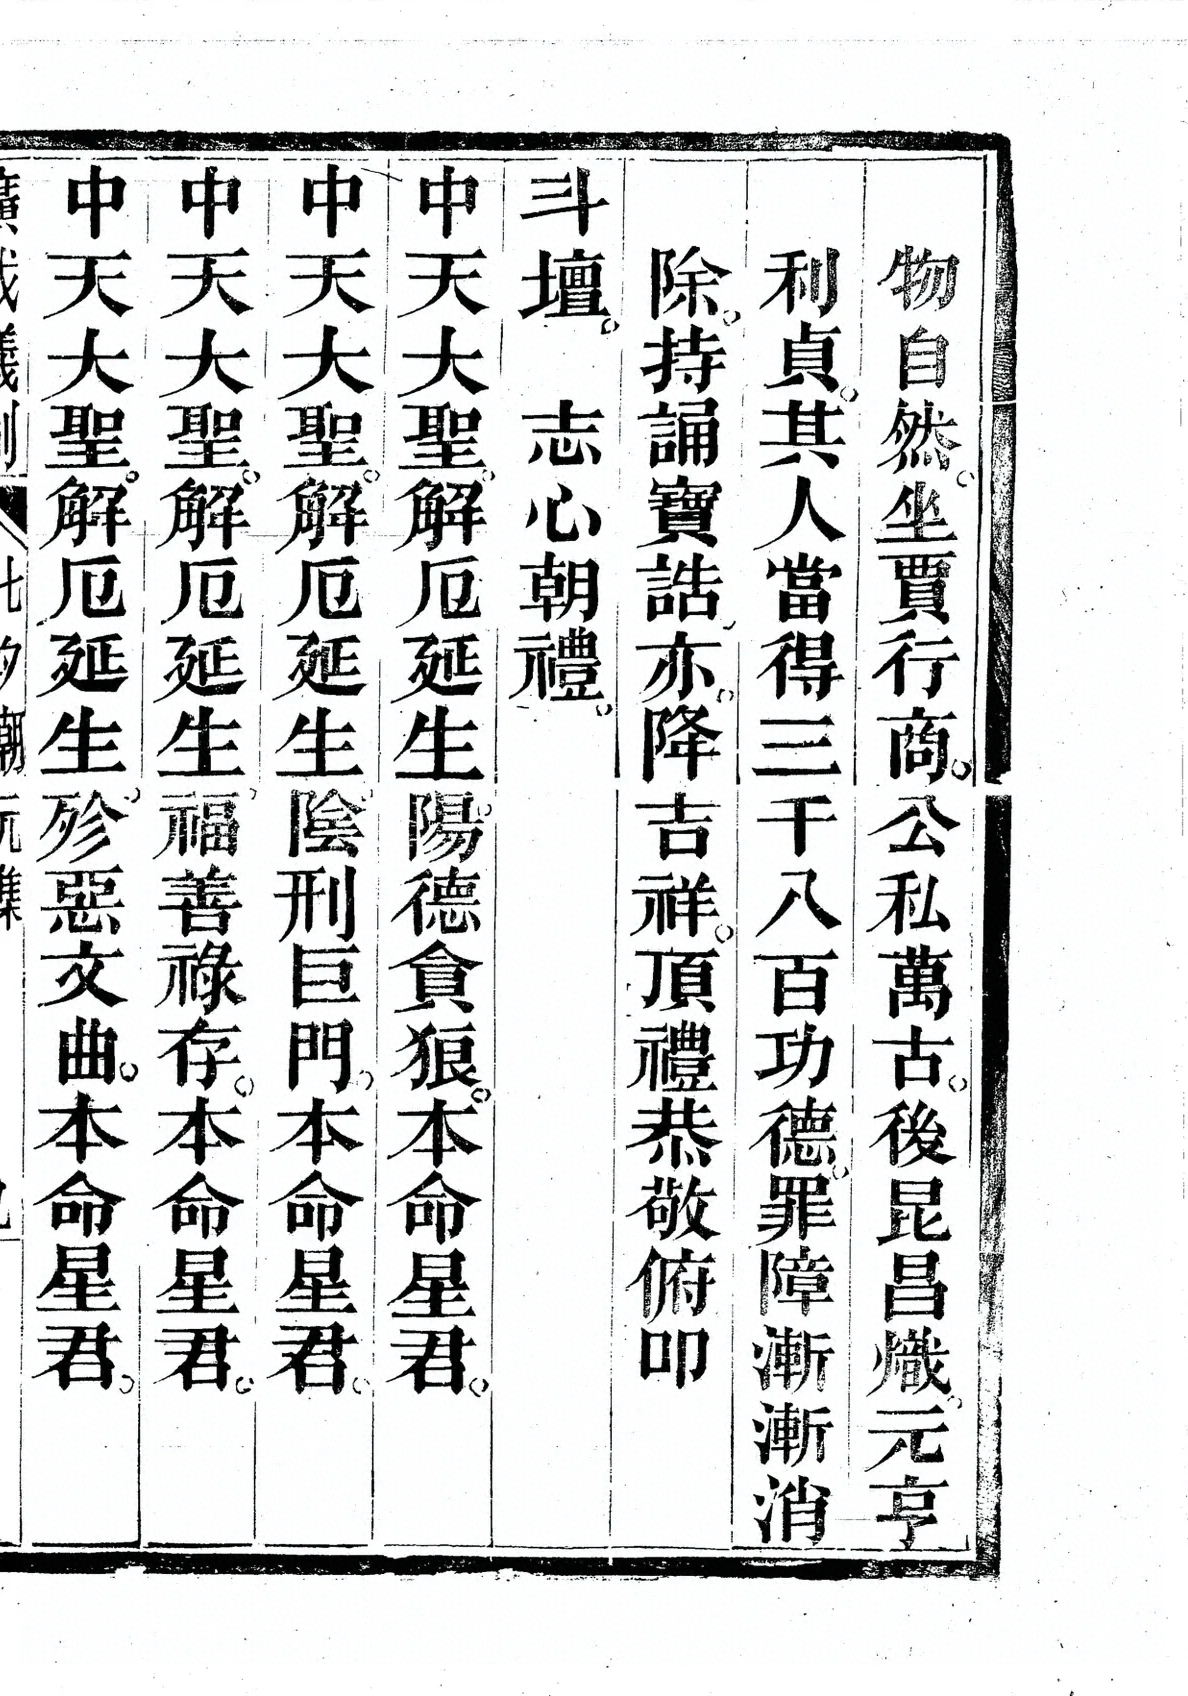 物自然。坐賈行商。公私萬古。後昆昌熾。元亨
利貞。其人當得三千八百功德。罪障漸漸消
除。持誦寶誥、亦。降吉祥。頂禮恭敬俯叩
斗壇。　志心朝禮。
中天大聖。解厄延生。陽德貪狼。本命星君。
中天大聖。解厄延生。陰刑巨門。本命星君。
中天大聖。解厄延生。福善祿存。本命星君。
中天大聖。解厄延生。殄惡文曲。本命星君。